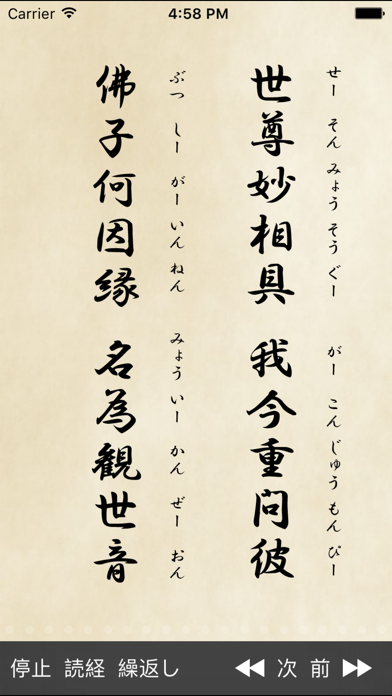 Carrier 4:58 PM
せー そん みょう そう ぐー がー こん じゅう もん ぴー
世尊妙相具 我今重問彼
ぶつ しー がー いん ねん みょう いー かん ぜー おん
佛子何因縁 名為観世音
停止 読経 繰返し 次 前